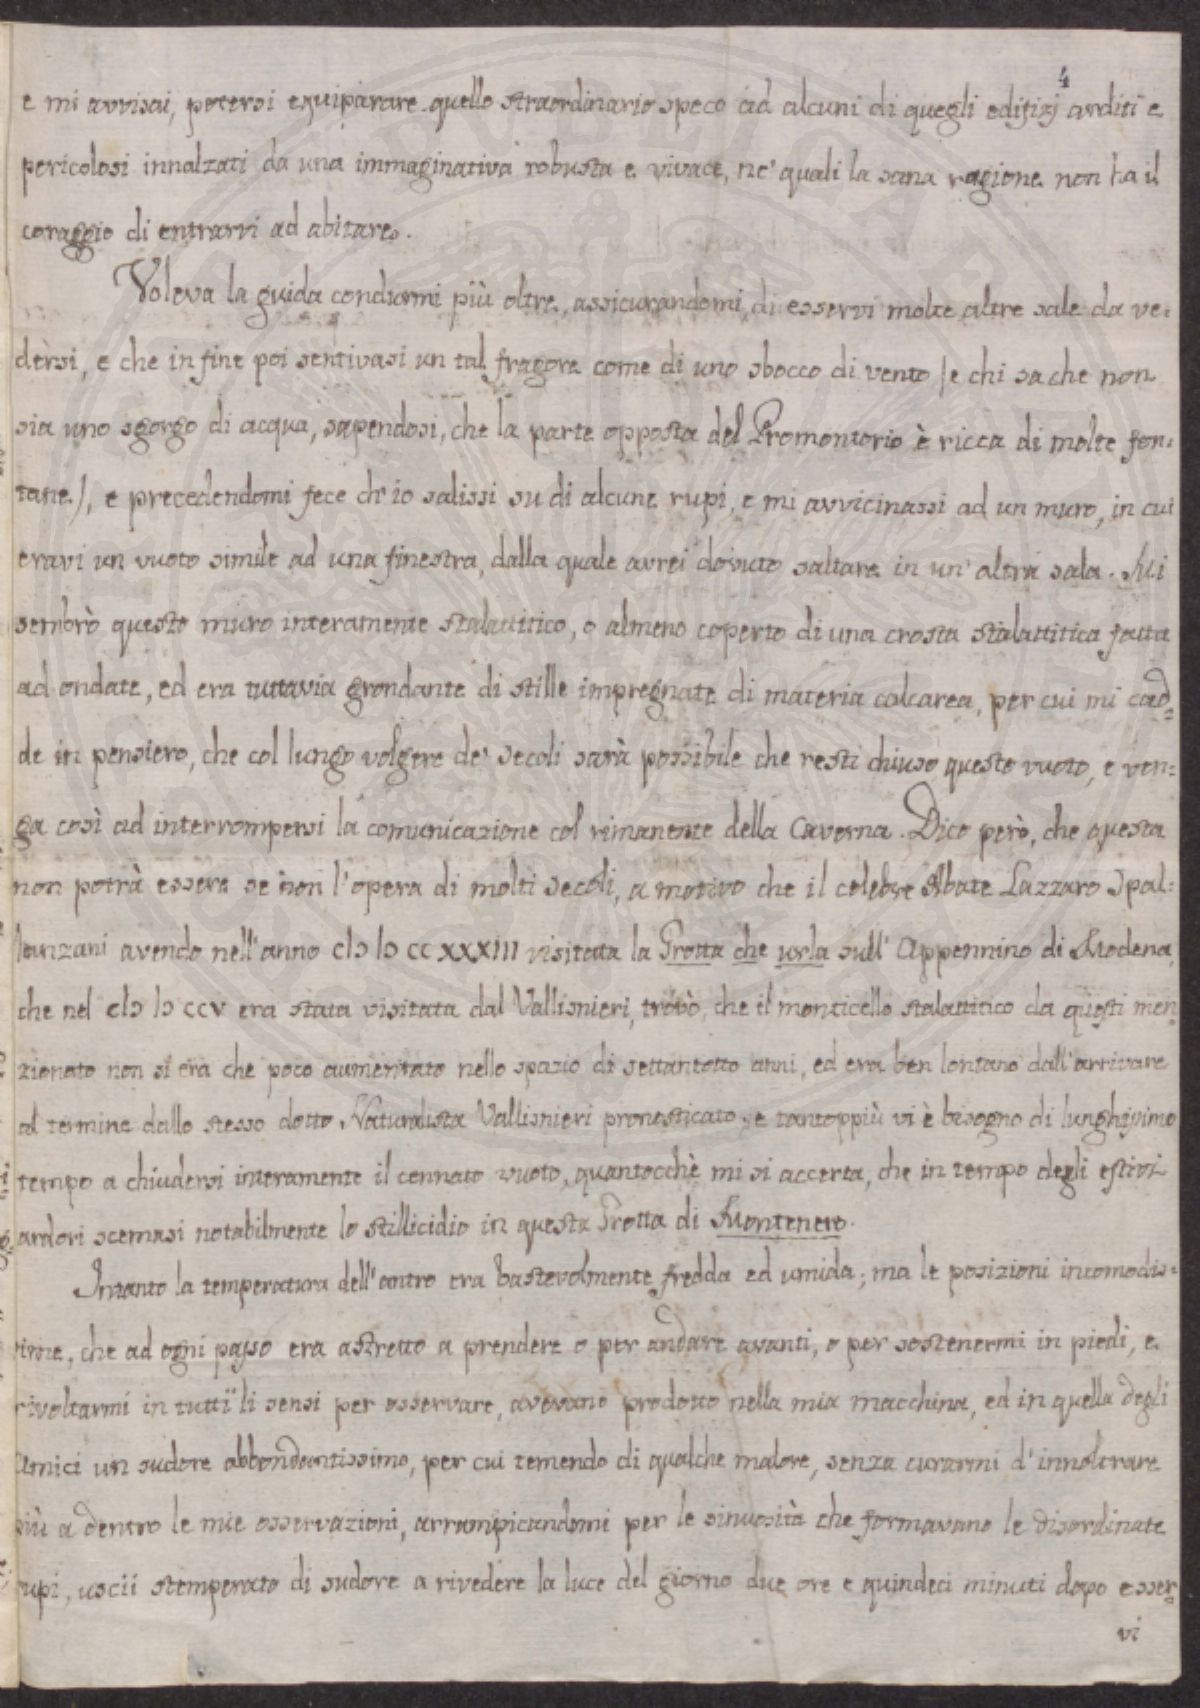 4
e mi avvisai, potersi equiparare quello straordinario speco ad alcuni di quegli edifizj arditi e
pericolosi innalzati da una immaginativa robusta e vivace, ne' quali la sana ragione non ha il
coraggio di entrarvi ad abitare.
Voleva la guida condurmi più oltre, assicurandomi, di esservi molte altre sale da ve-
dersi, e che in fine poi sentivasi un tal fragore come di uno sbocco di vento (e chi sa che non
sia uno sgorgo di acqua, sapendosi, che la parte opposta del Promontorio è ricca di molte fon-
tane), e precedendomi fece ch'io salissi su di alcune rupi, e mi avvicinassi ad un muro, in cui
eravi un vuoto simile ad una finestra, dalla quale avrei dovuto saltare in un'altra sala. Mi
sembrò questo muro interamente stalattitico, o almeno coperto di una crosta stalattitica fatta
ad ondate, ed era tuttavia grondante di stille impregnate di materia calcarea, per cui mi cad-
de in pensiero, che col lungo volgere de' secoli sarà possibile che resti chiuso questo vuoto, e ven-
ga così ad interrompersi la comunicazione col rimanente della Caverna. Dico però, che questa
non potrà essere se non l'opera di molti secoli, a motivo che il celebre Abate Lazzaro Spal-
lanzani avendo nell'anno cIↄ Iↄ CCXXXIII visitata la Grotta che urla sull'Appennino di Modena,
che nel cIↄ Iↄ CCV era stata visitata dal Vallisnieri, trovò, che il monticello stalattitico da questi men
zionato non si era che poco aumentato nello spazio di settantotto anni, ed era ben lontano dall'arrivare
al termine dallo stesso dotto Naturalista Vallisnieri pronosticato; e tantoppiù vi è bisogno di lunghissimo
tempo a chiudersi interamente il cennato vuoto, quantocchè mi si accerta, che in tempo degli estivi
ardori scemasi notabilmente lo stillicidio in questa Grotta di Montenero.
Intanto la temperatura dell'antro era bastevolmente fredda ed umida; ma le posizioni incomodis-
sime, che ad ogni passo era astretto a prendere o per andare avanti, o per sostenermi in piedi, e
rivoltarmi in tutti li sensi per osservare, avevano prodotto nella mia macchina, ed in quella degli
Amici un sudore abbondantissimo, per cui temendo di qualche malore, senza curarmi d'innoltrare
più a dentro le mie osservazioni, arrampicandomi per le sinuosità che formavano le disordinate
rupi, uscii stemperato di sudore a rivedere la luce del giorno due ore e quindeci minuti dopo esser-
vi